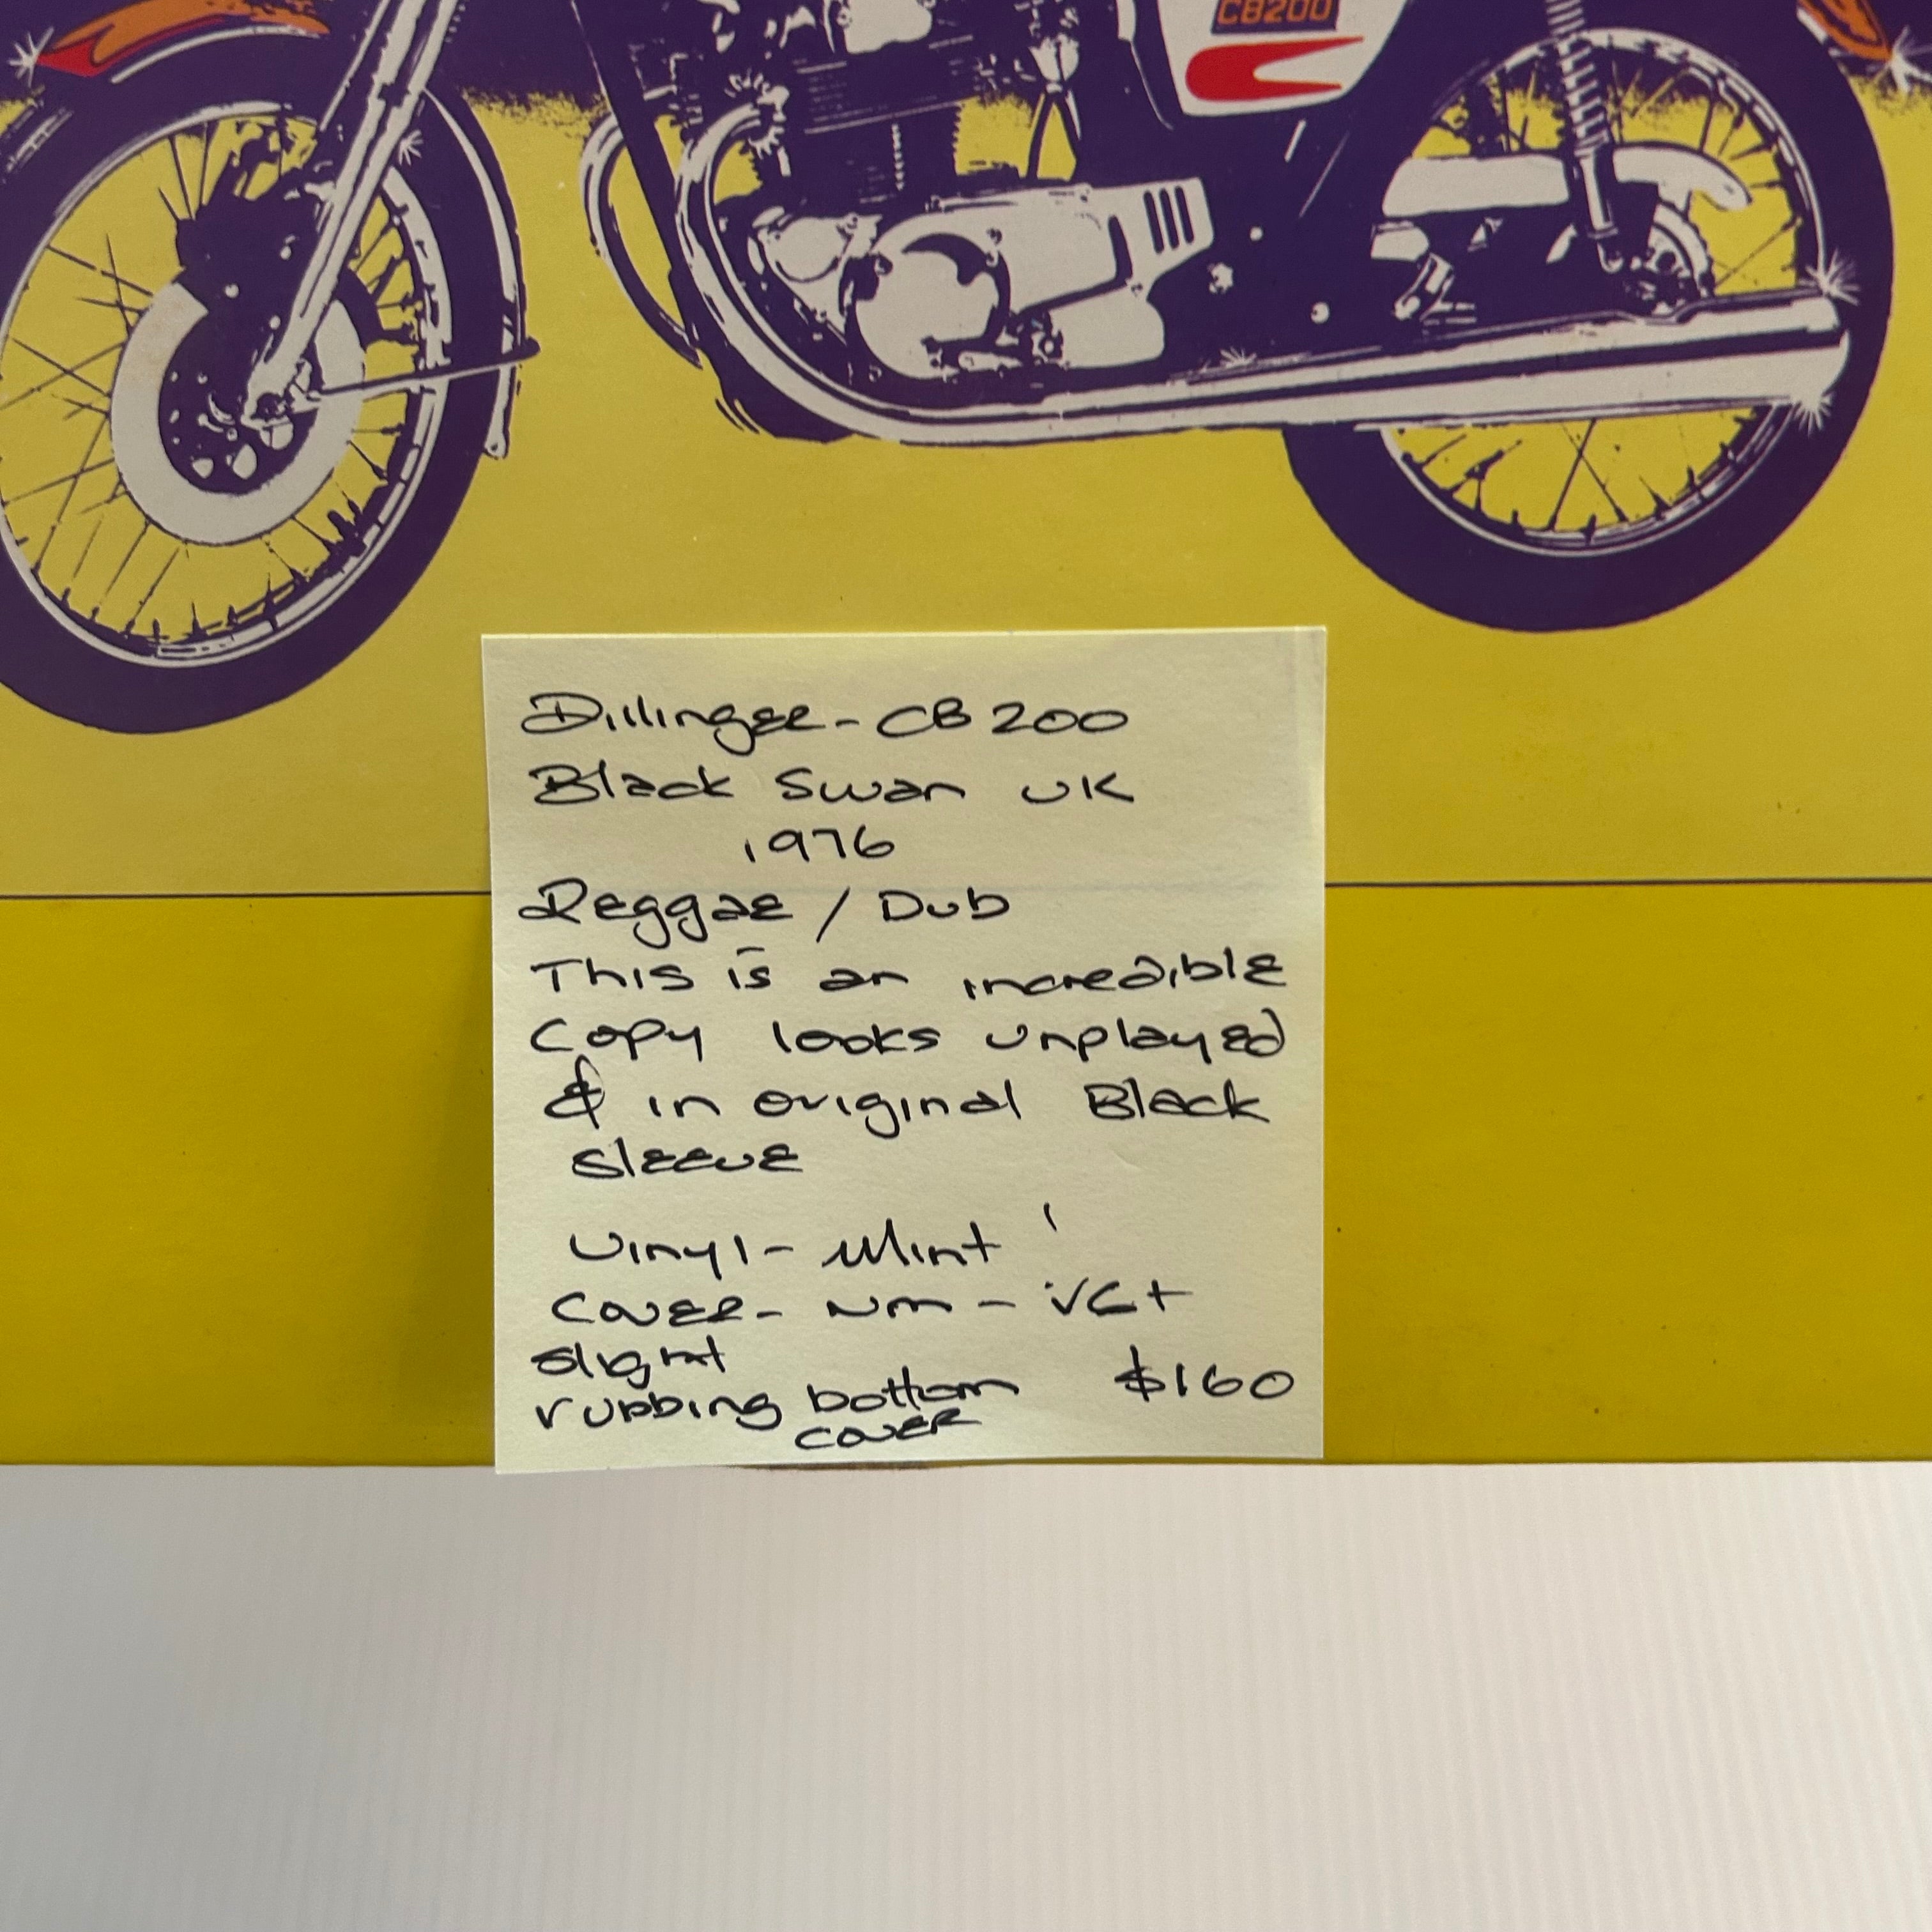 CB200
Dillinger - CB 200
Black Swan UK
1976
Reggae / Dub
This is an incredible
Copy looks unplayed
& in original Black
sleeve
Vinyl - Mint
Cover - NM - VG+
slight
rubbing bottom $160
cover